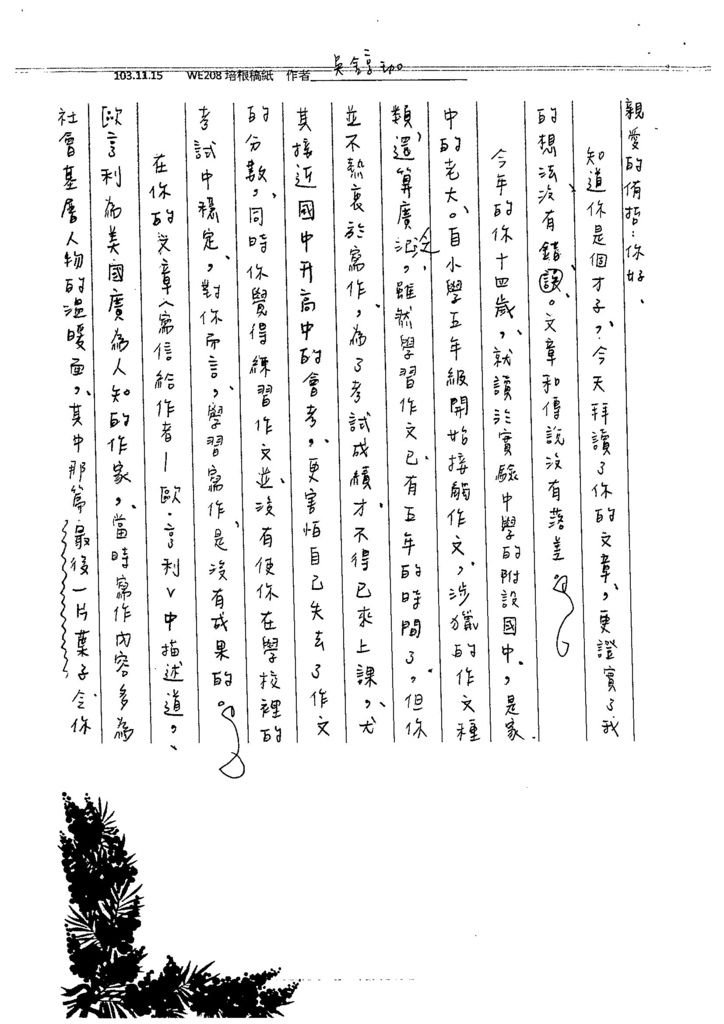 103.11.15 WE208 培根稿紙 作者 吳
親愛的侑哲：你好、
知道你是個才子，今天拜讀了你的文章，更證實了我
的想法沒有錯誤。文章和傳說沒有落差。
今年的你十四歲，就讀於實驗中學的附設國中，是家
中的老大。自小學五年級開始接觸作文，涉獵的作文種
類還算廣泛，雖然學習作文已有五年的時間了，但你
並不熱衷於寫作，為了考試成績才不得已來上課，尤
其接近國中升高中的會考，更害怕自己失去了作文
的分數，同時你覺得練習作文並沒有使你在學校裡的
考試中穩定，對你而言，學習寫作是沒有成果的。
在你的文章〈寫信給作者—歐·亨利〉中描述道，
歐亨利為美國廣為人知的作家，當時寫作內容多為
社會基層人物的溫暖面，其中那篇最後一片葉子令你